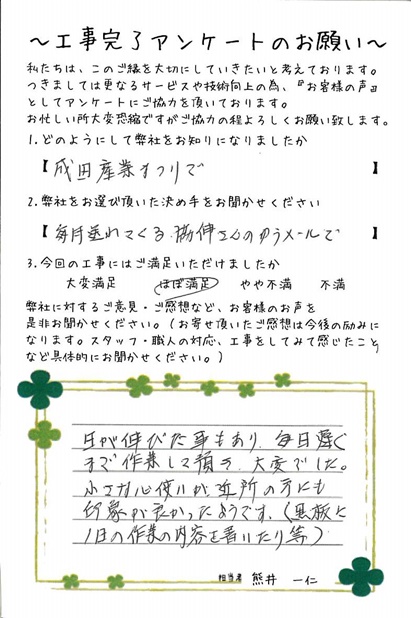 ～工事完了アンケートのお願い～
私たちは、このご縁を大切にしていきたいと考えております。
つきましては更なるサービスや技術向上の為、『お客様の声』
としてアンケートにご協力を頂いております。
お忙しい所大変恐縮ですがご協力の程よろしくお願い致します。
1.どのようにして弊社をお知りになりましたか
【 成田産業まつりで 】
2.弊社をお選び頂いた決め手をお聞かせください
【 毎月送れてくる、 さんのゆうメールで 】
3.今回の工事にはご満足いただけましたか
大変満足 ほぼ満足 やや不満 不満
弊社に対するご意見・ご感想など、お客様のお声を
是非お聞かせください。(お寄せ頂いたご感想は今後の励みに
なります。スタッフ・職人の対応、工事をしてみて感じたこと
など具体的にお聞かせください。)
日が伸びた事もあり、毎日遅く
まで作業して頂き、大変でした。
小さな心使いが近所の方にも
印象が良かったようです。(黒板に
1日の作業の内容を書いたり等)
担当者 熊井 一仁